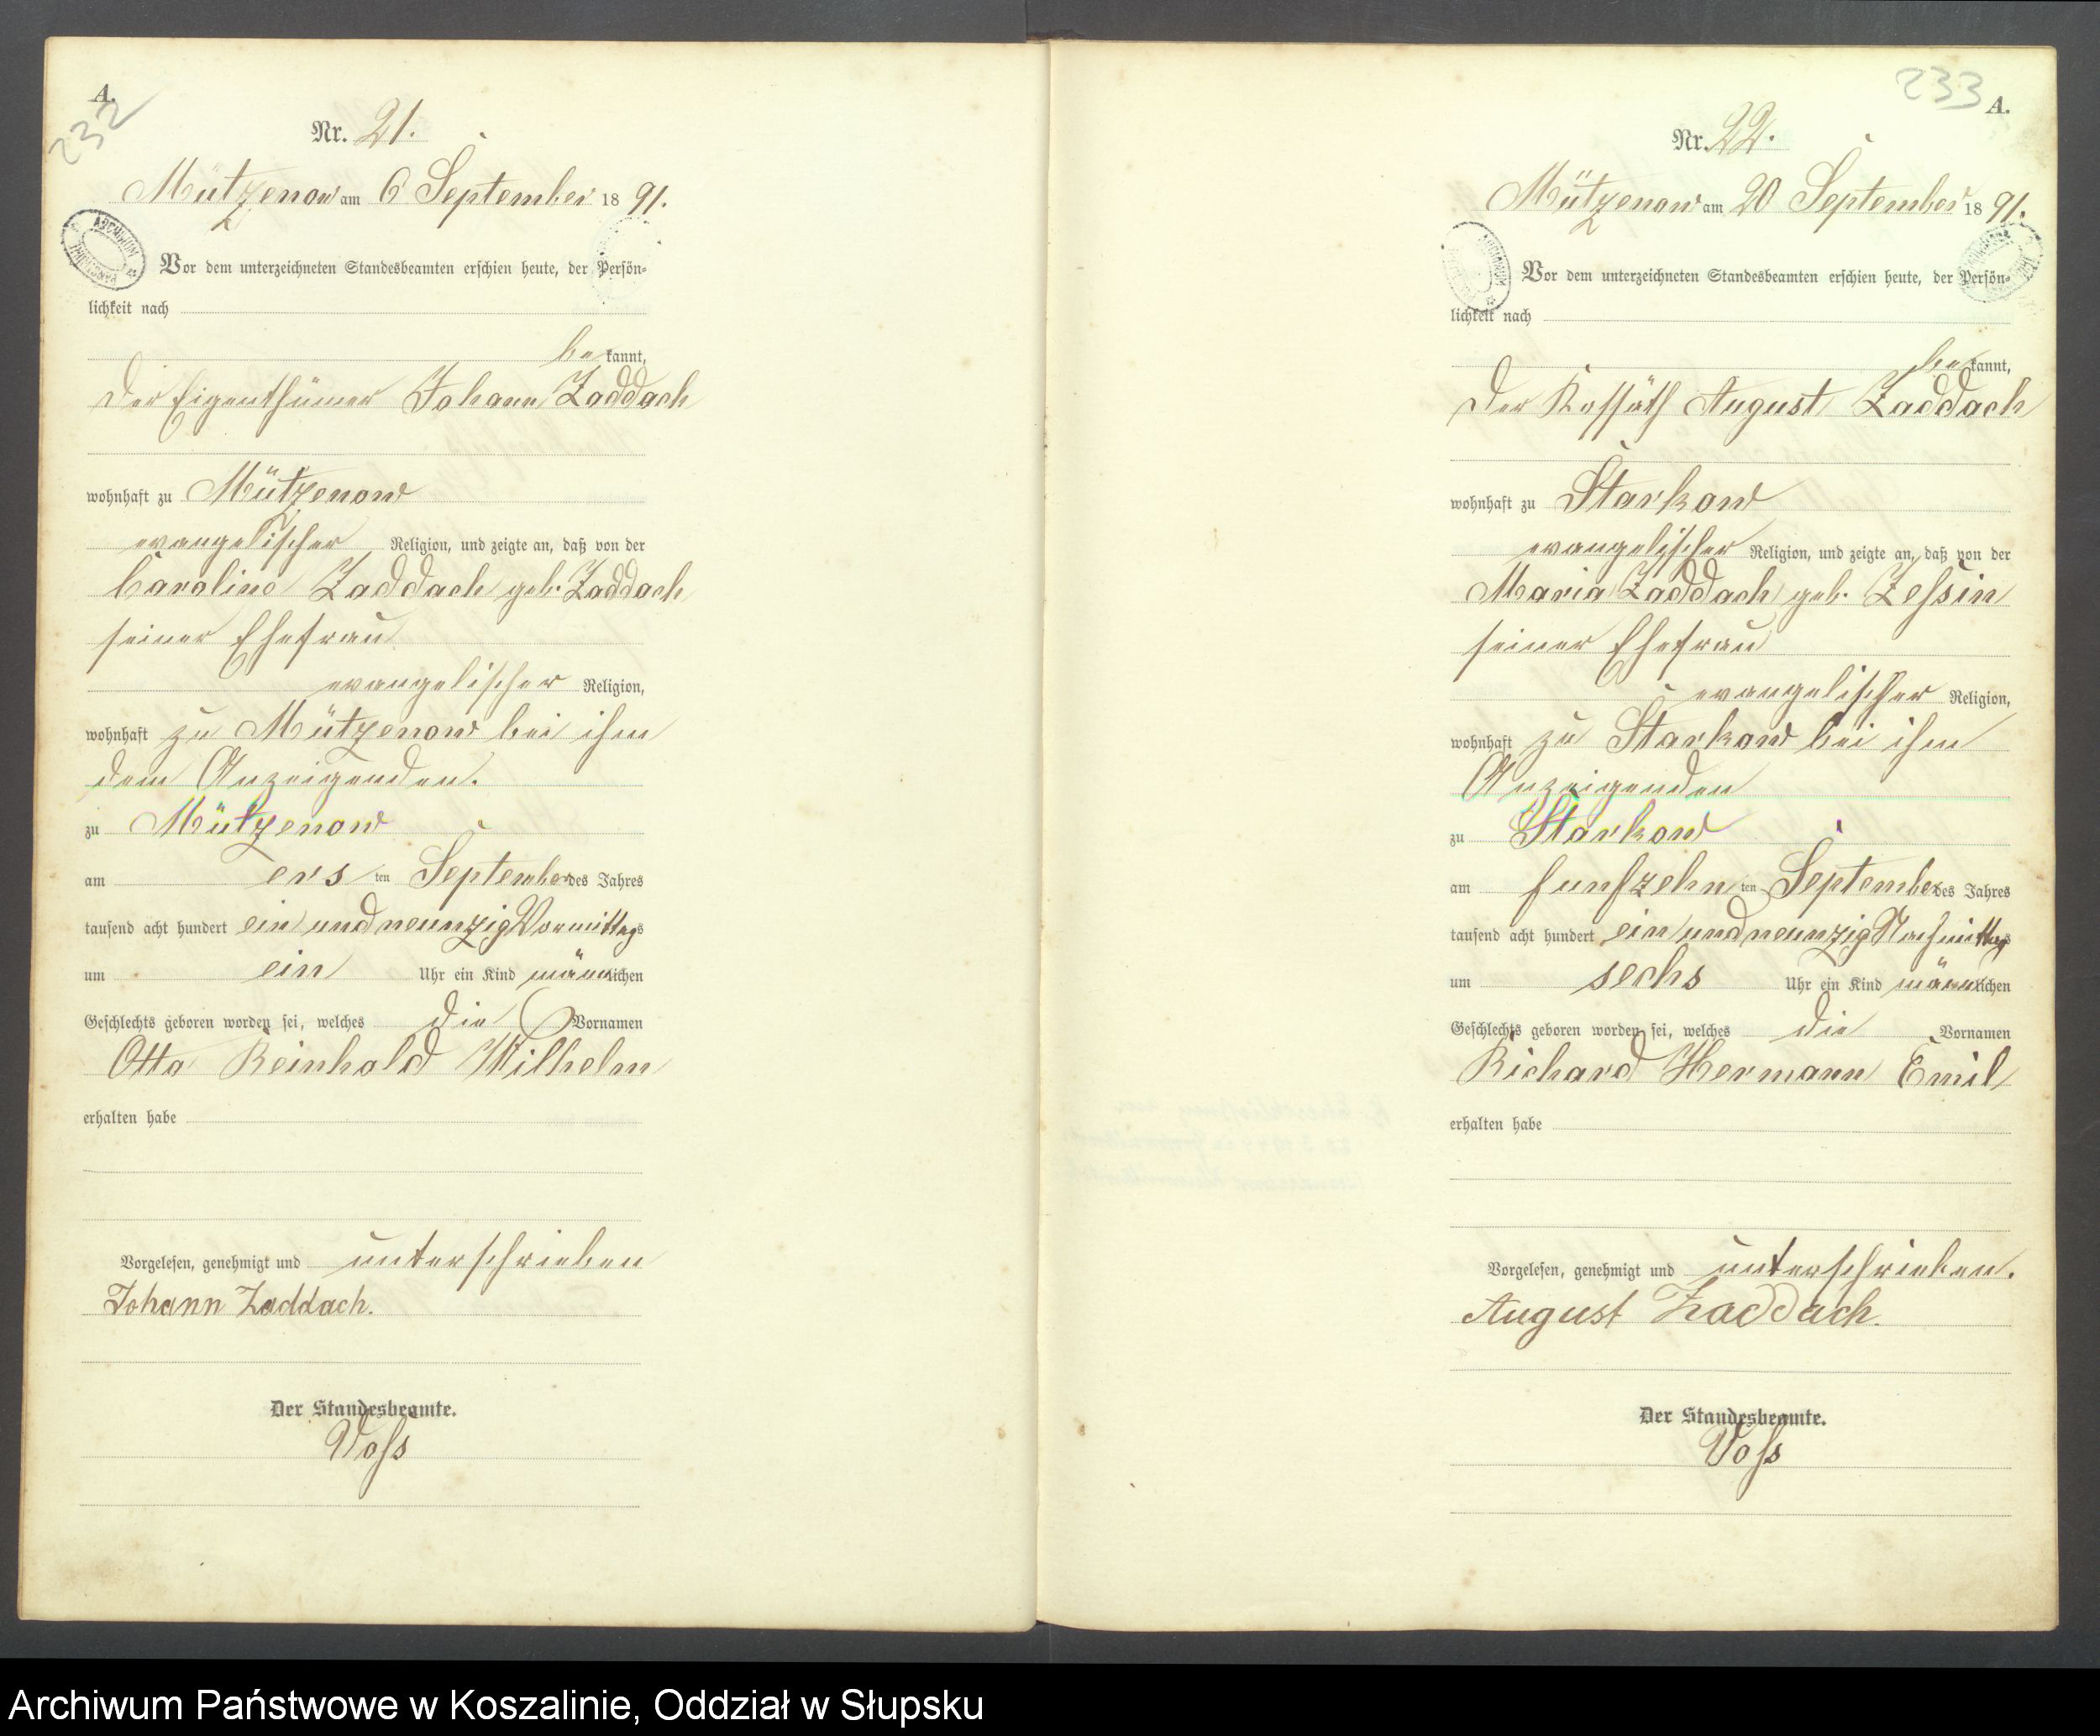 A.
232
Nr. 21.
Mützenow am 6 September 1891.
Vor dem unterzeichneten Standesbeamten erschien heute, der Persön-
lichkeit nach
bekannt,
der Eigenthümer Johann Zaddach
wohnhaft zu Mützenow
evangelischer Religion, und zeigte an, daß von der
Caroline Zaddach geb. Zaddach
seiner Ehefrau
evangelischer Religion,
wohnhaft zu Mützenow bei ihm
dem Anzeigenden.
zu Mützenow
am ersten September des Jahres
tausend acht hundert ein und neunzig Vormittags
um ein Uhr ein Kind männlichen
Geschlechts geboren worden sei, welches die Vornamen
Otto Reinhold Wilhelm
erhalten habe
Vorgelesen, genehmigt und unterschrieben
Johann Zaddach.
Der Standesbeamte.
Voss
233
A.
Nr. 22.
Mützenow am 20 September 1891.
Vor dem unterzeichneten Standesbeamten erschien heute, der Persön-
lichkeit nach
bekannt,
der Kossäth August Zaddach
wohnhaft zu Starkow
evangelischer Religion, und zeigte an, daß von der
Maria Zaddach geb. Zessin
seiner Ehefrau
evangelischer Religion,
wohnhaft zu Starkow bei ihm
Anzeigenden
zu Starkow
am funfzehnten September des Jahres
tausend acht hundert ein und neunzig Nachmittags
um sechs Uhr ein Kind männlichen
Geschlechts geboren worden sei, welches die Vornamen
Richard Hermann Emil
erhalten habe
Vorgelesen, genehmigt und unterschrieben.
August Zaddach.
Der Standesbeamte.
Voss
Archiwum Państwowe w Koszalinie, Oddział w Słupsku